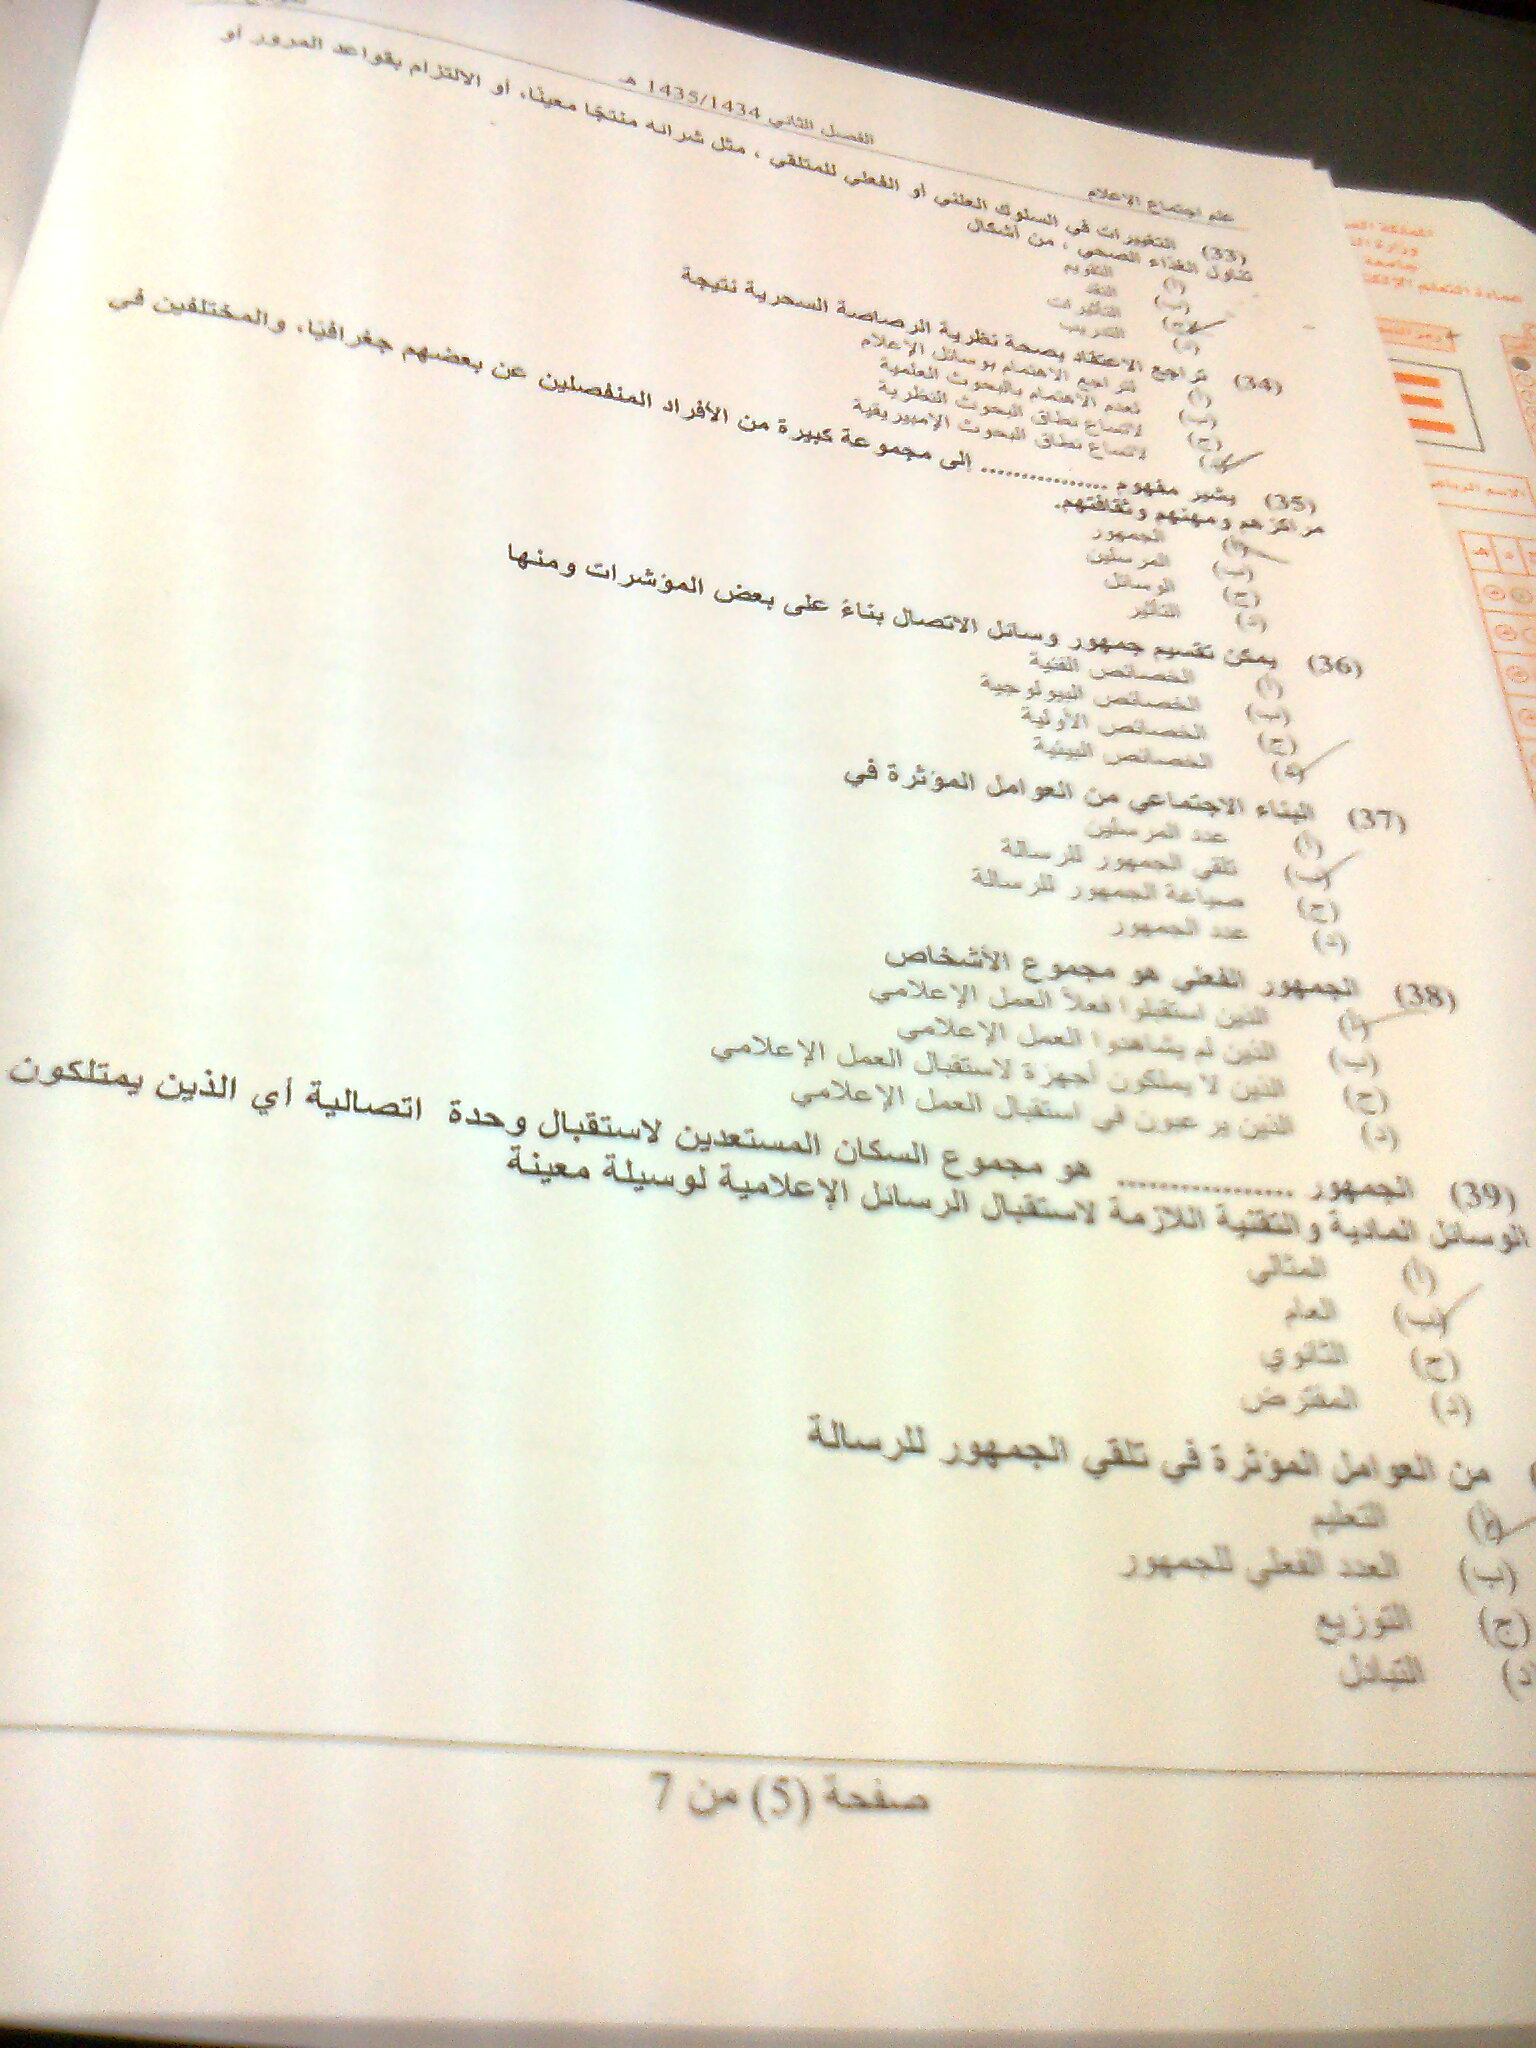 علم اجتماع الإعلام
الفصل الثاني 1435/1434 هـ
(33) التغييرات في السلوك العلني أو الفعلي للمتلقي ، مثل شرائه منتجًا معينًا، أو الالتزام بقواعد المرور أو
تناول الغذاء الصحي ، من أشكال
(أ) التقويم
(ب) النقد
(ج) التأثيرات
(د) التدريب
(34) تراجع الاعتقاد بصحة نظرية الرصاصة السحرية نتيجة
(أ) لتراجع الاهتمام بوسائل الإعلام
(ب) لعدم الاهتمام بالبحوث العلمية
(ج) لاتساع نطاق البحوث النظرية
(د) لاتساع نطاق البحوث الإمبيريقية
(35) يشير مفهوم ................ إلى مجموعة كبيرة من الأفراد المنفصلين عن بعضهم جغرافيًا، والمختلفين في
مراكزهم ومهنهم وثقافتهم.
(أ) الجمهور
(ب) المرسلين
(ج) الوسائل
(د) التأثير
(36) يمكن تقسيم جمهور وسائل الاتصال بناءً على بعض المؤشرات ومنها
(أ) الخصائص الفنية
(ب) الخصائص البيولوجية
(ج) الخصائص الأولية
(د) الخصائص البيئية
(37) البناء الاجتماعي من العوامل المؤثرة في
(أ) عدد المرسلين
(ب) تلقي الجمهور للرسالة
(ج) صياغة الجمهور للرسالة
(د) عدد الجمهور
(38) الجمهور الفعلي هو مجموع الأشخاص
(أ) الذين استقبلوا فعلاً العمل الإعلامي
(ب) الذين لم يشاهدوا العمل الإعلامي
(ج) الذين لا يملكون أجهزة لاستقبال العمل الإعلامي
(د) الذين يرغبون في استقبال العمل الإعلامي
(39) الجمهور ................ هو مجموع السكان المستعدين لاستقبال وحدة اتصالية أي الذين يمتلكون
الوسائل المادية والتقنية اللازمة لاستقبال الرسائل الإعلامية لوسيلة معينة
(أ) المثالي
(ب) العام
(ج) الثانوي
(د) المفترض
من العوامل المؤثرة في تلقي الجمهور للرسالة
(أ) التعليم
(ب) العدد الفعلي للجمهور
(ج) التوزيع
د) التبادل
صفحة (5) من 7
المملكة
وزارة
جامعة
عمادة التعلم
رمز
الاسم